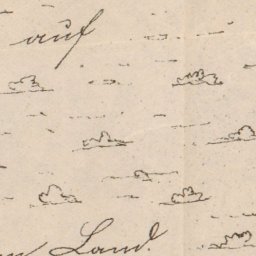 auf
Land.